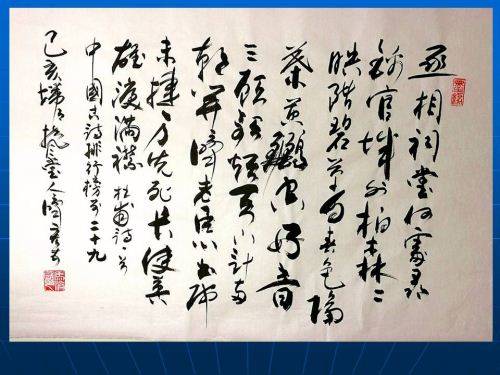 丞相祠堂何處尋
錦官城外柏森々
映階碧草自春色隔
葉黃鸝空好音
三顧頻煩天下計兩
朝開濟老臣心出師
未捷身先死長使英
雄淚滿襟 杜甫詩
中國古詩排行榜第二十九
己亥